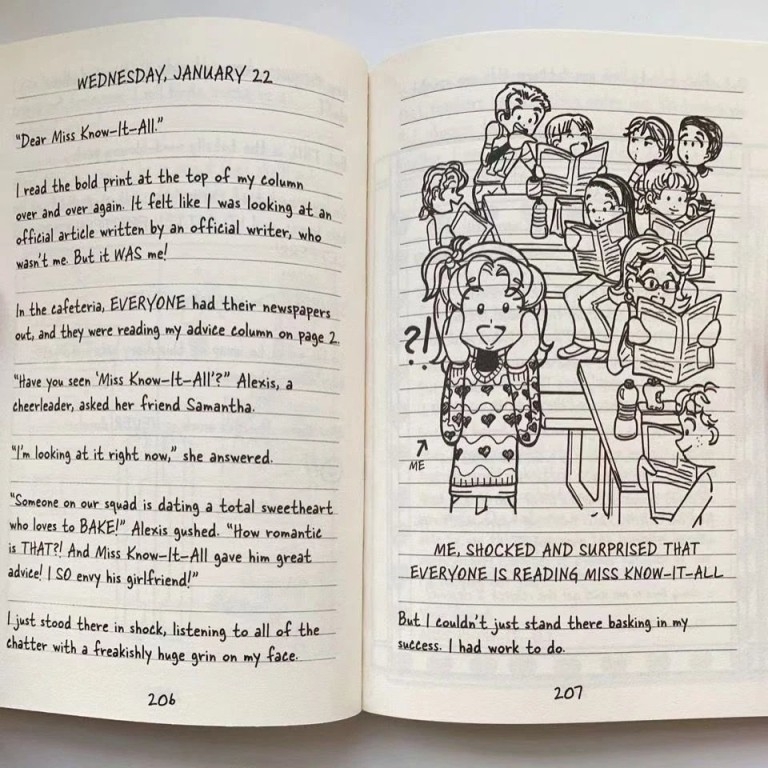 WEDNESDAY, JANUARY 22
"Dear Miss Know-It-All."
I read the bold print at the top of my column
over and over again. It felt like I was looking at an
official article written by an official writer, who
wasn't me. But it WAS me!
In the cafeteria, EVERYONE had their newspapers
out, and they were reading my advice column on page 2.
"Have you seen 'Miss Know-It-All'?" Alexis, a
cheerleader, asked her friend Samantha.
"I'm looking at it right now," she answered.
"Someone on our squad is dating a total sweetheart
who loves to BAKE!" Alexis gushed. "How romantic
is THAT?! And Miss Know-It-All gave him great
advice! I SO envy his girlfriend!"
I just stood there in shock, listening to all of the
chatter with a freakishly huge grin on my face.
206
?!
ME
ME, SHOCKED AND SURPRISED THAT
EVERYONE IS READING MISS KNOW-IT-ALL
But I couldn't just stand there basking in my
success. I had work to do.
207